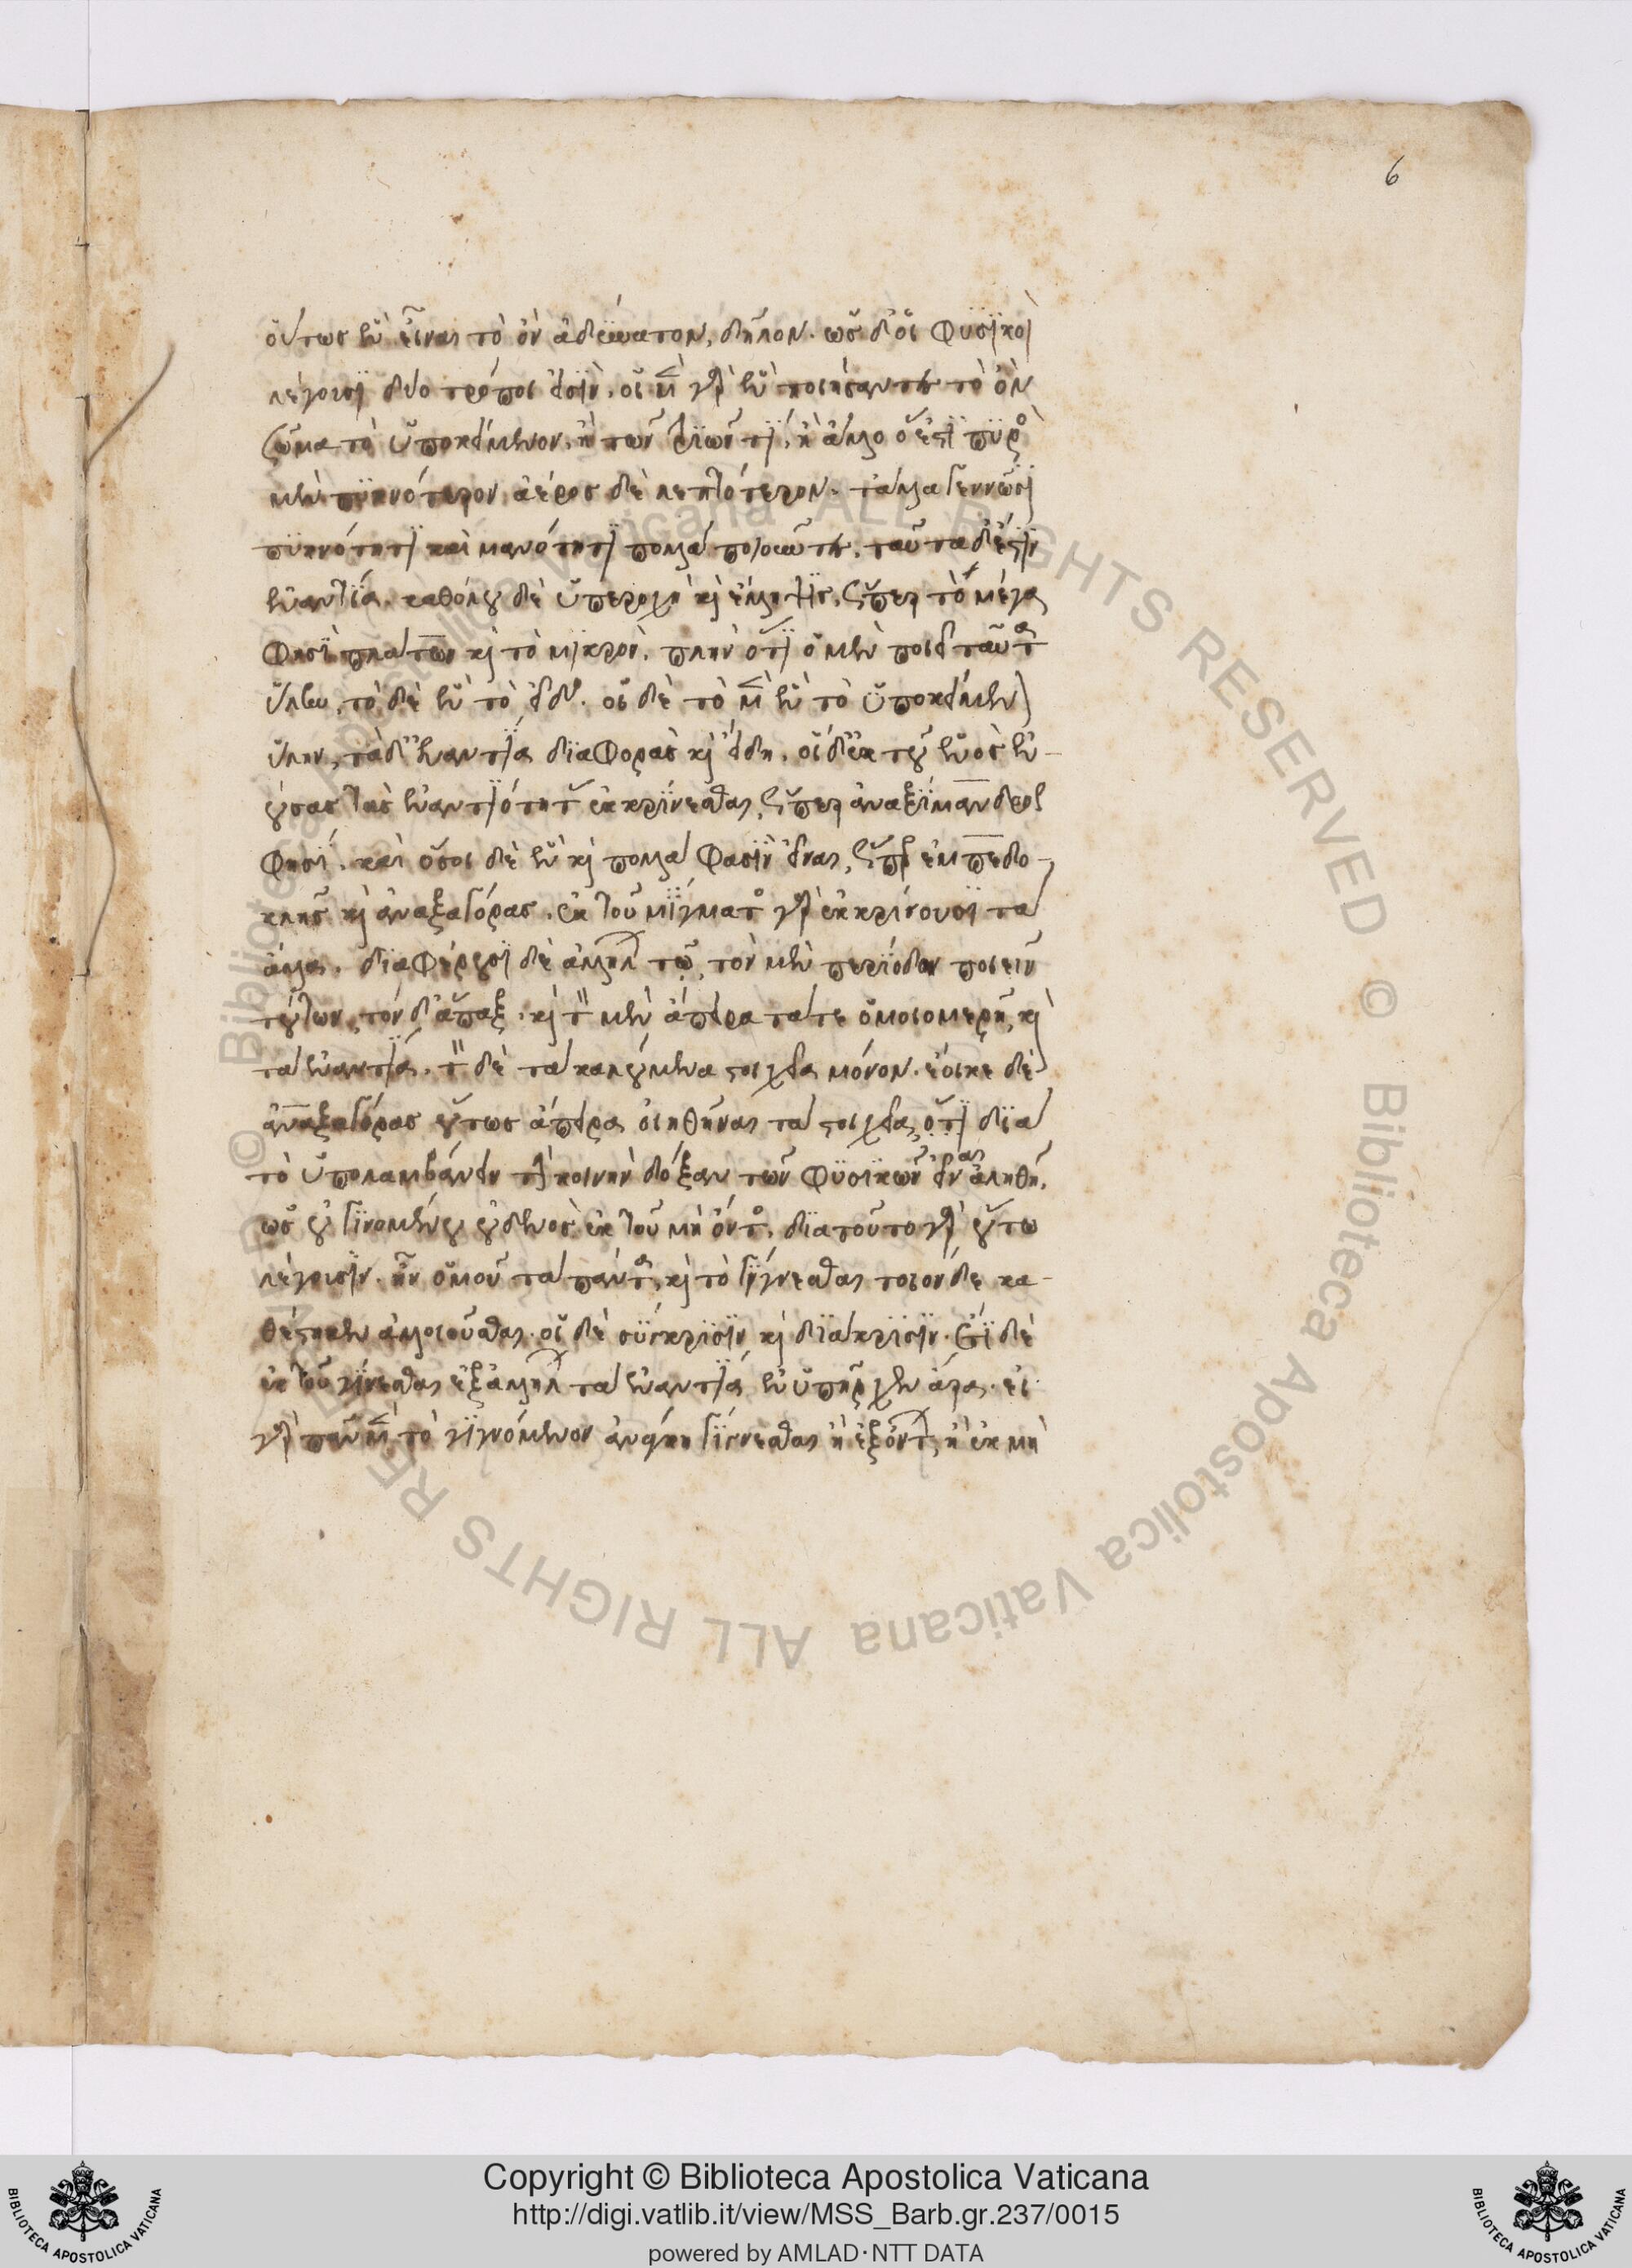 6
οὕτως ἓν εἶναι τὸ ὂν ἀδύνατον, δῆλον. ὡς δ' οἱ φυσικοὶ
λέγουσι δύο τρόποι εἰσὶν. οἱ μὲν γὰρ ἓν ποιήσαντες τὸ ὂν
σῶμα τὸ ὑποκείμενον. ἢ τῶν τριῶν τι, ἢ ἄλλο ὅ ἐστι πυρὸς
μὲν πυκνότερον ἀέρος δὲ λεπτότερον. τἆλλα γεννῶσι
πυκνότητι καὶ μανότητι πολλὰ ποιοῦντες. ταῦτα δ' ἐστὶν
ἐναντία. καθόλου δὲ ὑπεροχὴ καὶ ἔλλειψις, ὥσπερ τὸ μέγα
φησὶ πλάτων καὶ τὸ μικρὸν. πλὴν ὅτι ὁ μὲν ποιεῖ ταῦτα
ὕλην, τὸ δὲ ἓν τὸ εἶδος. οἱ δὲ τὸ μὲν ἓν τὸ ὑποκείμενον
ὕλην, τὰ δ' ἐναντία διαφορὰς καὶ εἴδη. οἱ δ' ἐκ τοῦ ἑνὸς ἐν-
ούσας τὰς ἐναντιότητας ἐκκρίνεσθαι, ὥσπερ ἀναξίμανδρος
φησί. καὶ ὅσοι δὲ ἓν καὶ πολλὰ φασὶν εἶναι, ὥσπερ ἐμπεδο-
κλῆς καὶ ἀναξαγόρας. ἐκ τοῦ μίγματος γὰρ ἐκκρίνουσι τὰ
ἄλλα. διαφέρουσι δὲ ἀλλήλων τῷ, τὸν μὲν περίοδον ποιεῖν
τούτων, τὸν δ' ἅπαξ. καὶ τὸν μὲν ἄπειρα τά τε ὁμοιομερῆ, καὶ
τὰ ἐναντία. τὸν δὲ τὰ καλούμενα στοιχεῖα μόνον. ἔοικε δὲ
ἀναξαγόρας οὕτως ἄπειρα οἰηθῆναι τὰ στοιχεῖα, ὅτι διὰ
τὸ ὑπολαμβάνειν τὴν κοινὴν δόξαν τῶν φυσικῶν εἶναι ἀληθῆ,
ὡς οὐ γινομένου οὐδενὸς ἐκ τοῦ μὴ ὄντος. διὰ τοῦτο γὰρ οὕτω
λέγουσιν. ἦν ὁμοῦ τὰ πάντα, καὶ τὸ γίγνεσθαι τοιόνδε κα-
θέστηκεν ἀλλοιοῦσθαι. οἱ δὲ σύγκρισιν καὶ διάκρισιν. ἔτι δὲ
ἐκ τοῦ γίνεσθαι ἐξ ἀλλήλων τὰ ἐναντία, ἐνυπῆρχεν ἄρα. εἰ
γὰρ πᾶν μὲν τὸ γιγνόμενον ἀνάγκη γίγνεσθαι ἢ ἐξ ὄντων, ἢ ἐκ μὴ
Copyright © Biblioteca Apostolica Vaticana
http://digi.vatlib.it/view/MSS_Barb.gr.237/0015
powered by AMLAD·NTT DATA
BIBLIOTECA APOSTOLICA VATICANA
BIBLIOTECA APOSTOLICA VATICANA
© Biblioteca Apostolica Vaticana ALL RIGHTS RESERVED © Biblioteca Apostolica Vaticana ALL RIGHTS RESERVED